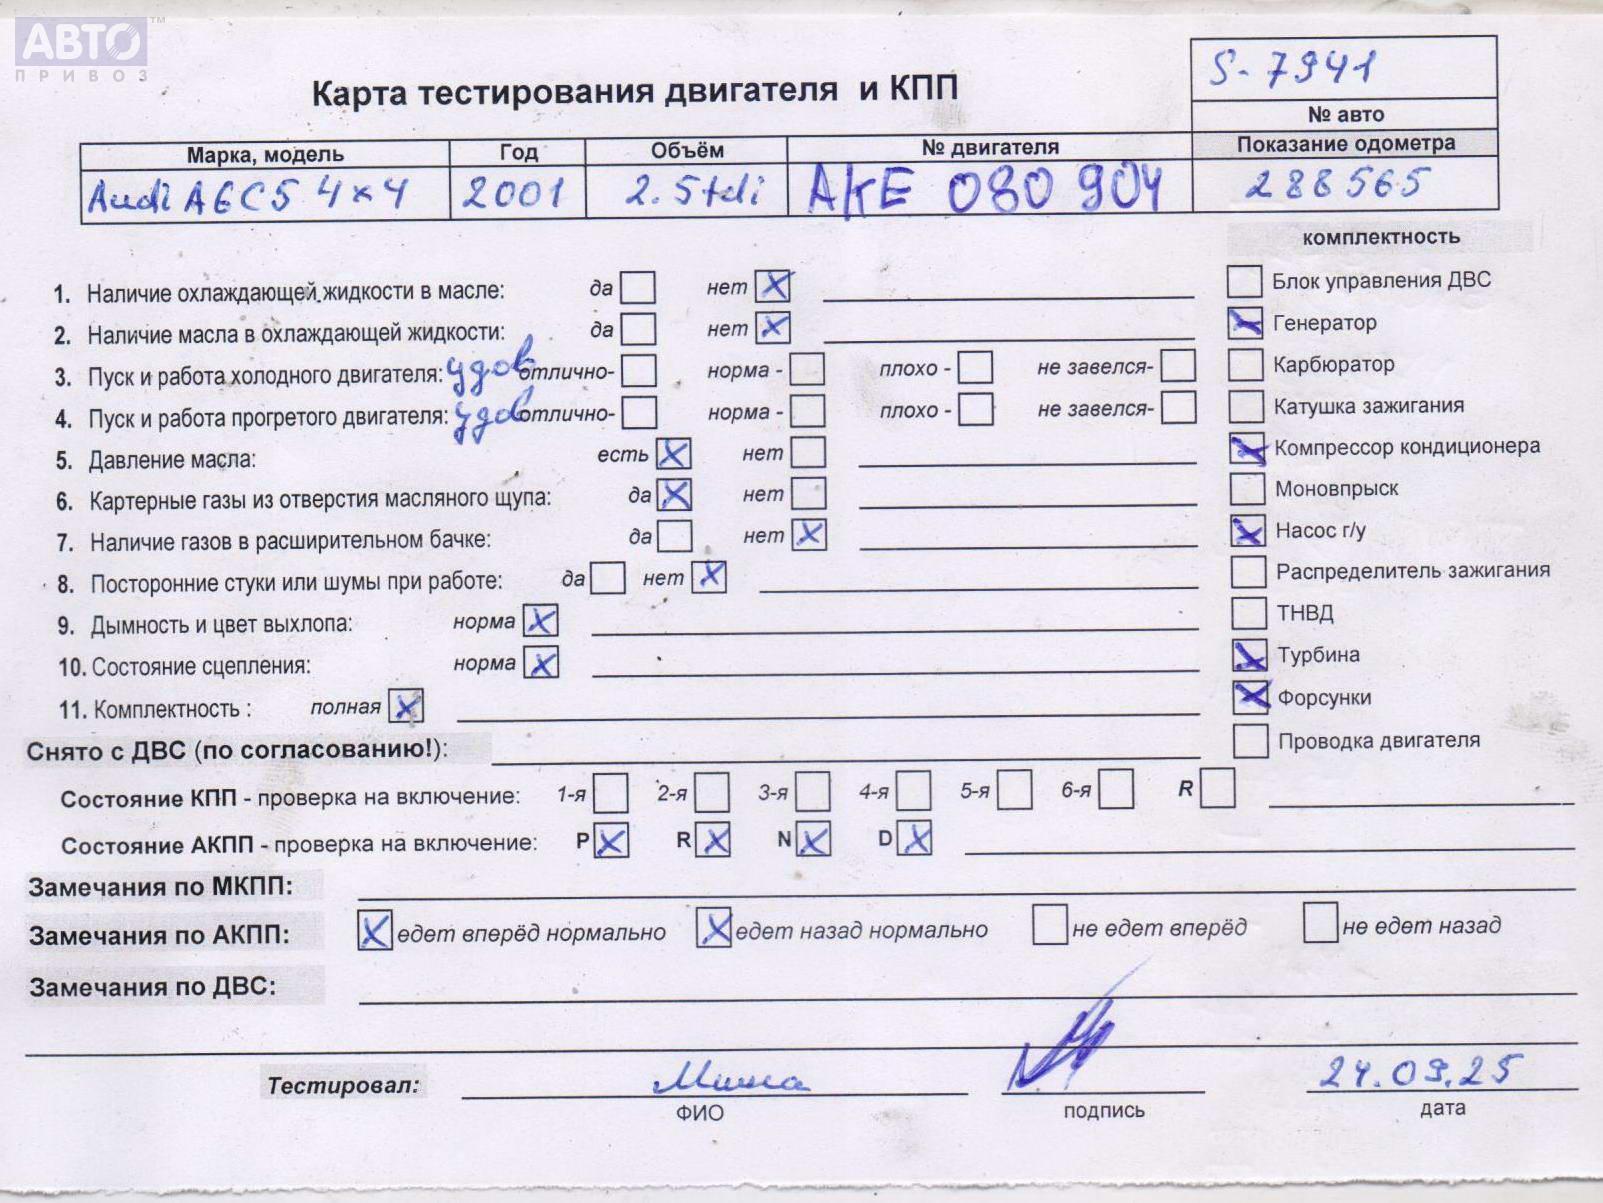 АВТО™
ПРИВОЗ
S-7941
Карта тестирования двигателя и КПП
№ авто
Марка, модель Год Объём № двигателя Показание одометра
Audi A6C5 4x4 2001 2.5tdi AKE 080904 288565
комплектность
1. Наличие охлаждающей жидкости в масле: да нет X
Блок управления ДВС
2. Наличие масла в охлаждающей жидкости: да нет X
X Генератор
3. Пуск и работа холодного двигателя: удов отлично- норма - плохо - не завелся-
Карбюратор
4. Пуск и работа прогретого двигателя: удов отлично- норма - плохо - не завелся-
Катушка зажигания
5. Давление масла: есть X нет
X Компрессор кондиционера
6. Картерные газы из отверстия масляного щупа: да X нет
Моновпрыск
7. Наличие газов в расширительном бачке: да нет X
X Насос г/у
8. Посторонние стуки или шумы при работе: да нет X
Распределитель зажигания
9. Дымность и цвет выхлопа: норма X
ТНВД
10. Состояние сцепления: норма X
X Турбина
11. Комплектность : полная X
X Форсунки
Снято с ДВС (по согласованию!):
Проводка двигателя
Состояние КПП - проверка на включение: 1-я 2-я 3-я 4-я 5-я 6-я R
Состояние АКПП - проверка на включение: P X R X N X D X
Замечания по МКПП:
Замечания по АКПП: X едет вперёд нормально X едет назад нормально не едет вперёд не едет назад
Замечания по ДВС:
Тестировал: 24.09.25
ФИО подпись дата